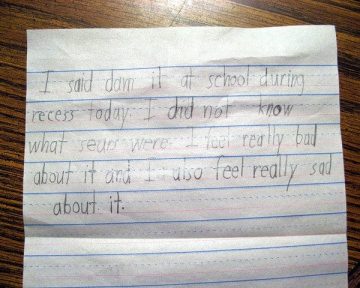 I said dam it at school during
recess today. I did not know
what sears were. I feel really bad
about it and I also feel really sad
about it.